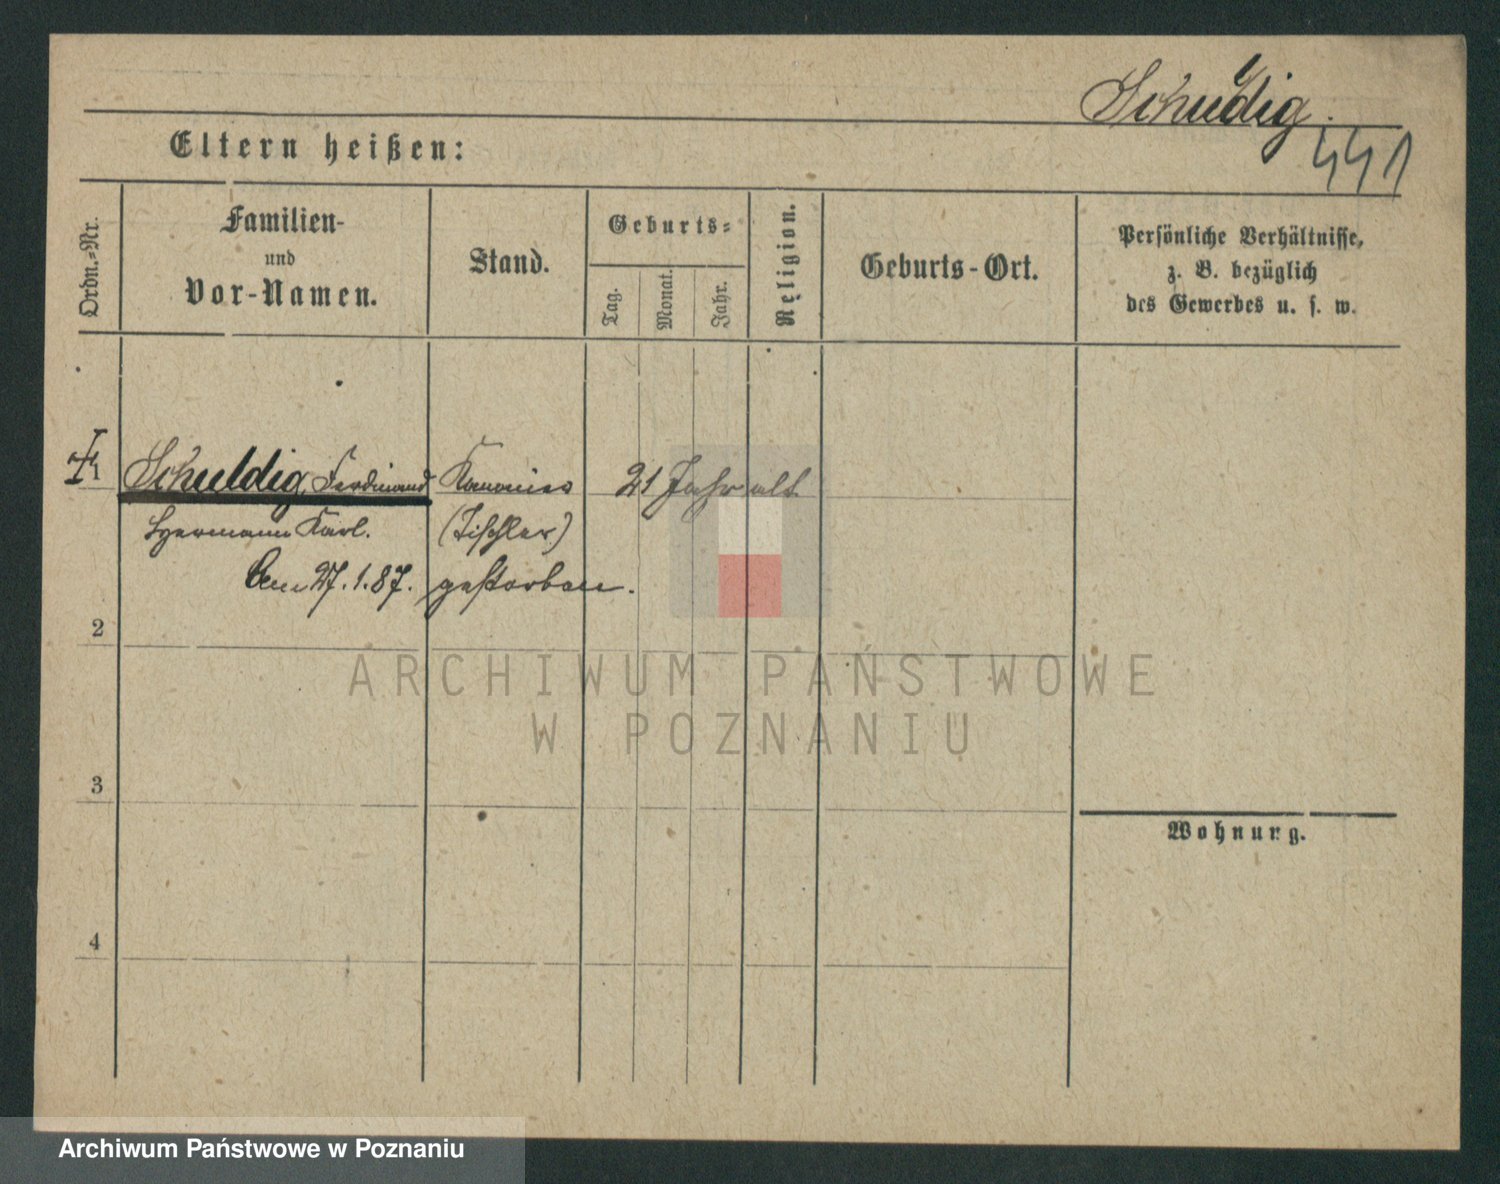 Schuldig.
441
Eltern heißen:
Ordn.-Nr.
Familien-
und
Vor-Namen.
Stand.
Geburts-
Tag.
Monat.
Jahr.
Religion.
Geburts-Ort.
Persönliche Verhältnisse,
z. B. bezüglich
des Gewerbes u. s. w.
1 Schuldig, Ferdinand Kanonier 21 Jahr alt
Hermann Karl. (Tischler)
Am 27.1.87. gestorben.
2
ARCHIWUM PAŃSTWOWE
W POZNANIU
3
Wohnung.
4
Archiwum Państwowe w Poznaniu